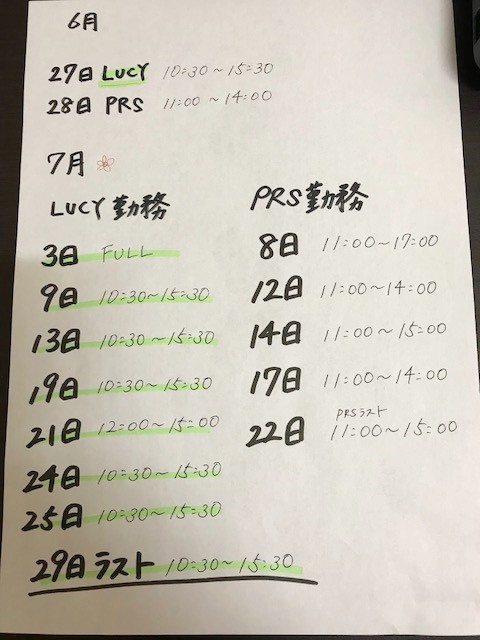 6月
27日 LUCY 10:30～15:30
28日 PRS 11:00～14:00
7月
LUCY 勤務
3日 FULL
9日 10:30～15:30
13日 10:30～15:30
19日 10:30～15:30
21日 12:00～15:00
24日 10:30～15:30
25日 10:30～15:30
29日ラスト 10:30～15:30
PRS勤務
8日 11:00～17:00
12日 11:00～14:00
14日 11:00～15:00
17日 11:00～14:00
PRSラスト
22日 11:00～15:00